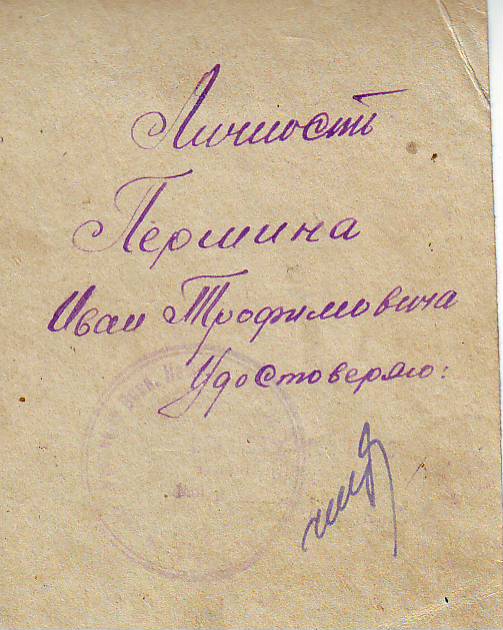 Личность
Першина
Иван Трофимовича
Удостоверяю: